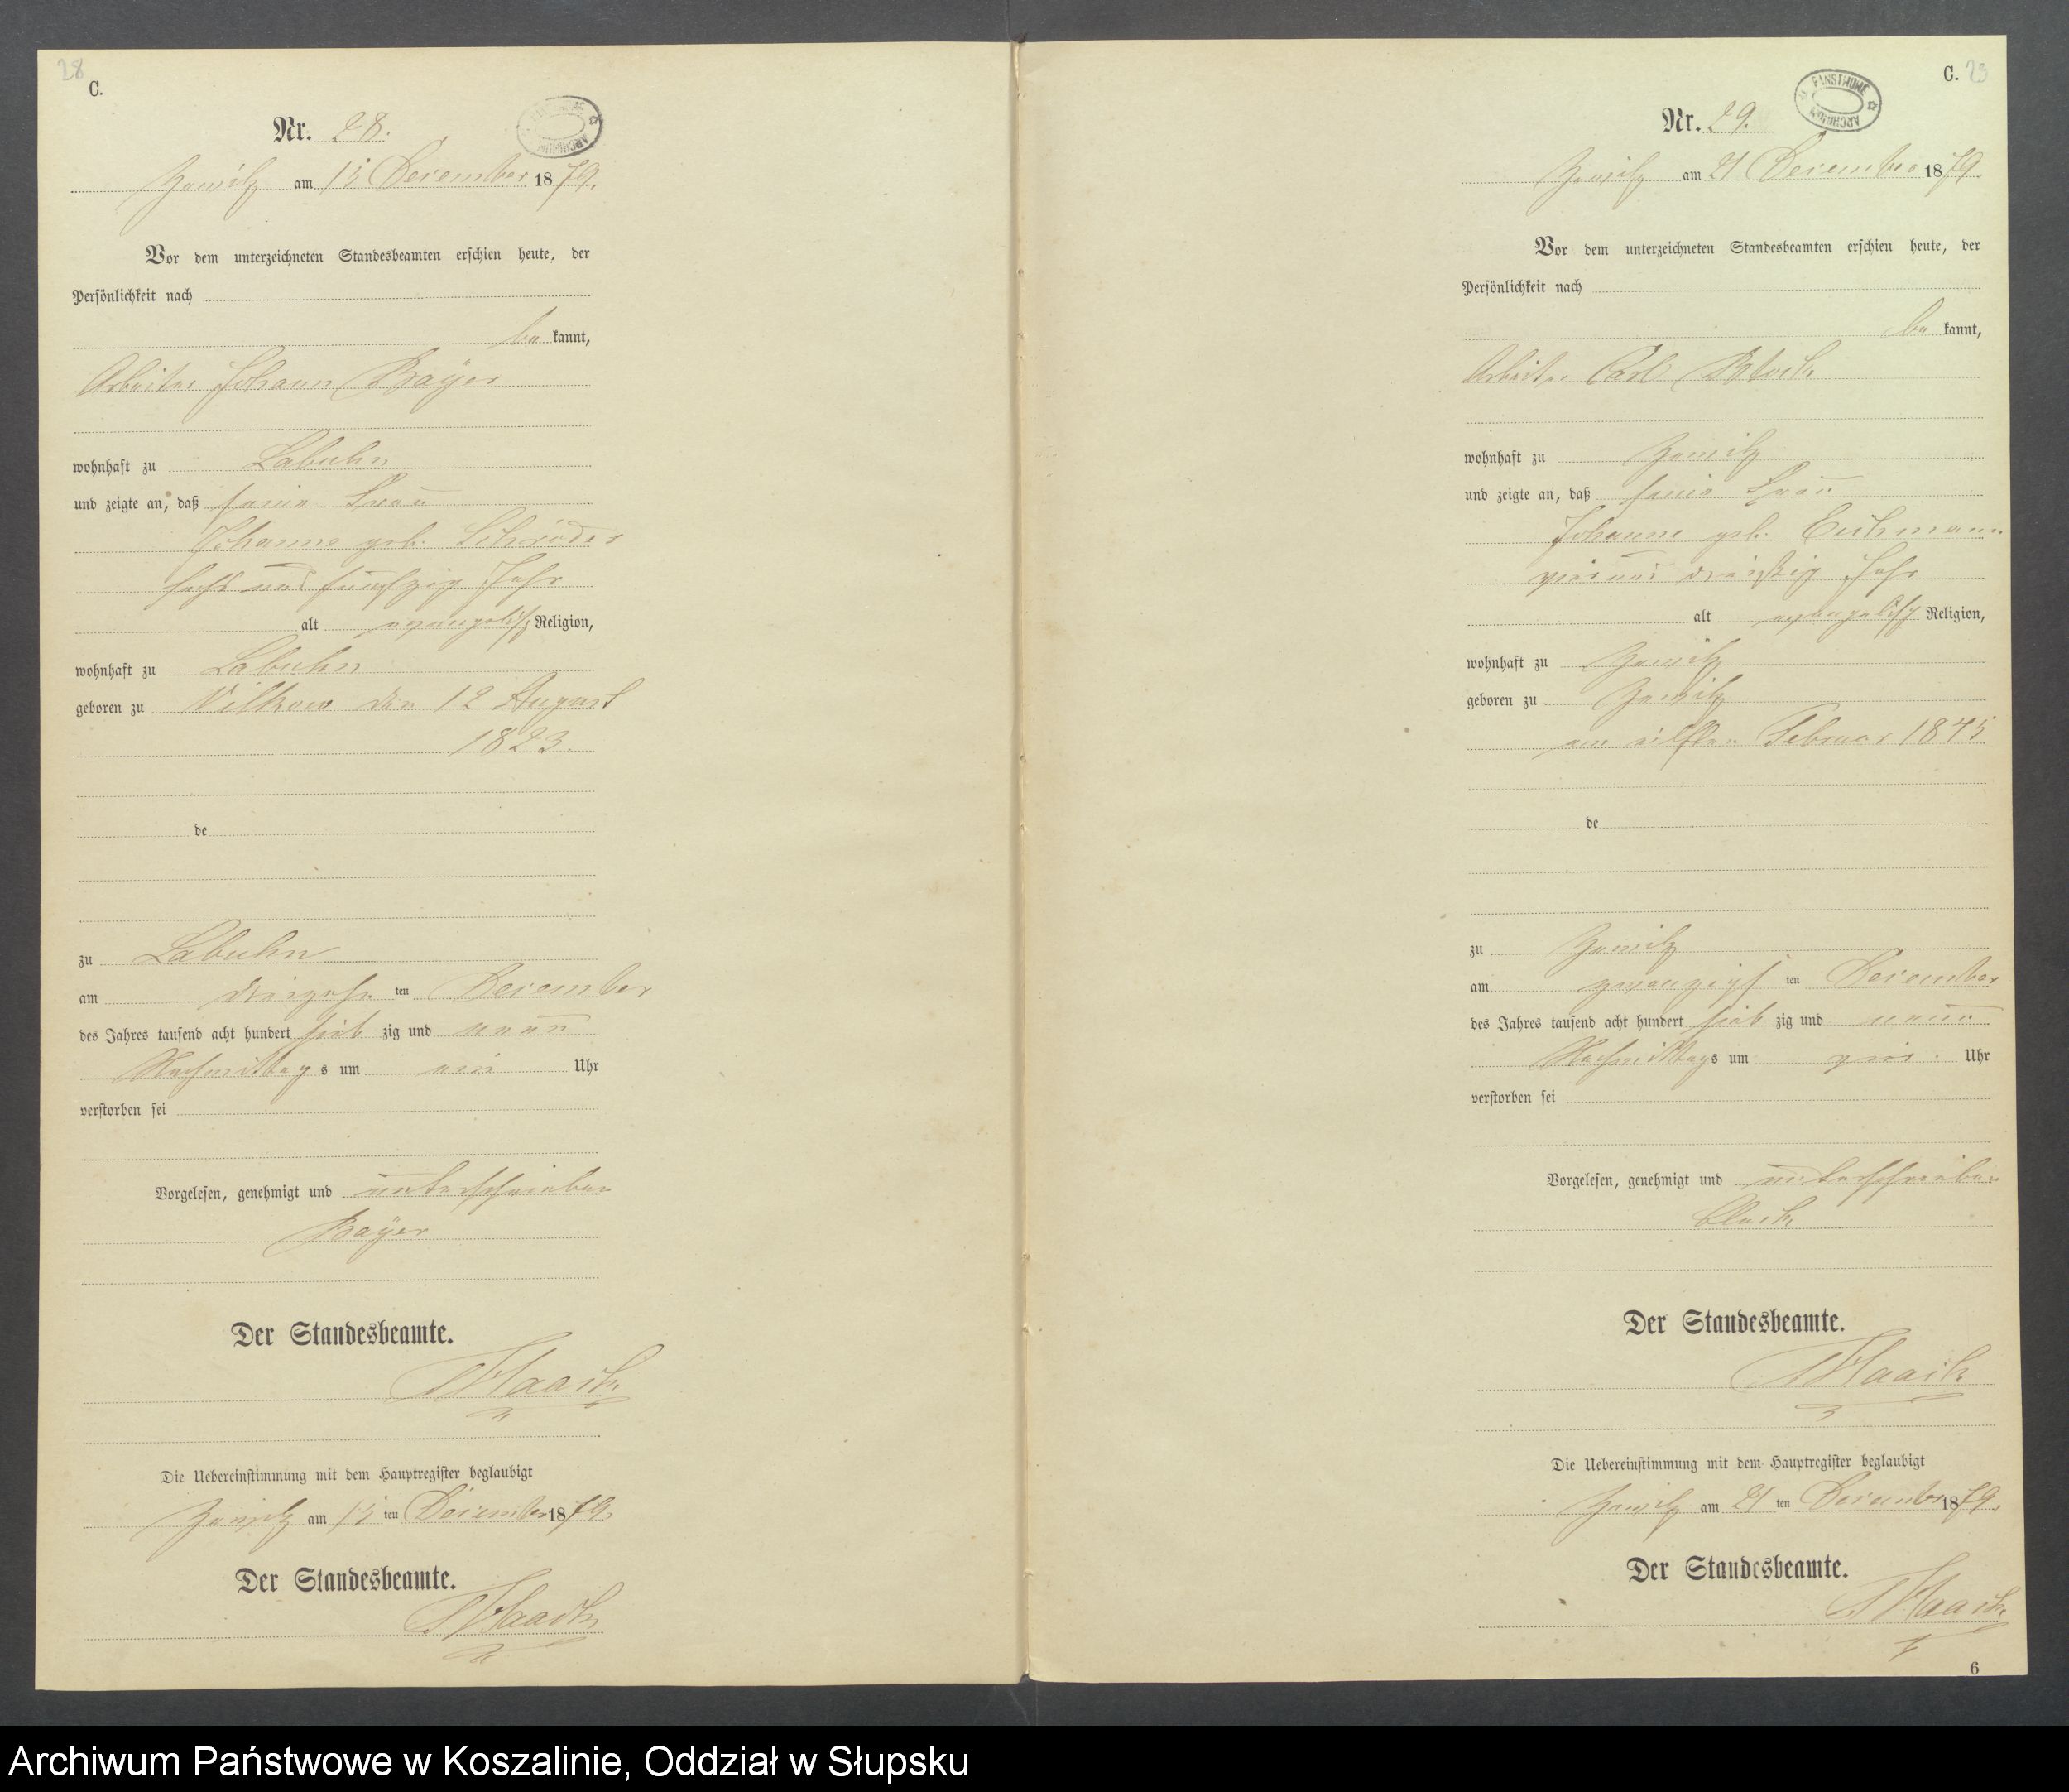 28
C.
Nr. 28.
Zewitz am 15 December 1879.
Vor dem unterzeichneten Standesbeamten erschien heute, der
Persönlichkeit nach
be kannt,
Arbeiter Johann Bayer
wohnhaft zu Labuhn
und zeigte an, daß seine Frau
Johanne geb. Schröder
sechs und fünfzig Jahr
alt evangelisch Religion,
wohnhaft zu Labuhn
geboren zu Vilkow den 12 August
1823.
de
zu Labuhn
am dreizehn ten December
des Jahres tausend acht hundert sieb zig und neun
Nachmittag s um ein Uhr
verstorben sei
Vorgelesen, genehmigt und unterschrieben
Bayer
Der Standesbeamte.
Haack
Die Uebereinstimmung mit dem Hauptregister beglaubigt
Zewitz am 15 ten December 1879.
Der Standesbeamte.
Haack
C. 29
PAŃSTWOWE
ARCHIWUM
Nr. 29.
Zewitz am 21 December 1879.
Vor dem unterzeichneten Standesbeamten erschien heute, der
Persönlichkeit nach
be kannt,
Arbeiter Carl Block
wohnhaft zu Zewitz
und zeigte an, daß seine Frau
Johanne geb. Eichmann
vier und dreißig Jahr
alt evangelisch Religion,
wohnhaft zu Zewitz
geboren zu Zewitz
am eilften Februar 1845
de
zu Zewitz
am zwanzigs ten December
des Jahres tausend acht hundert sieb zig und neun
Nachmittag s um Uhr
verstorben sei
Vorgelesen, genehmigt und unterschrieben
Block
Der Standesbeamte.
Haack
Die Uebereinstimmung mit dem Hauptregister beglaubigt
Zewitz am 21 ten December 1879.
Der Standesbeamte.
Haack
6
Archiwum Państwowe w Koszalinie, Oddział w Słupsku